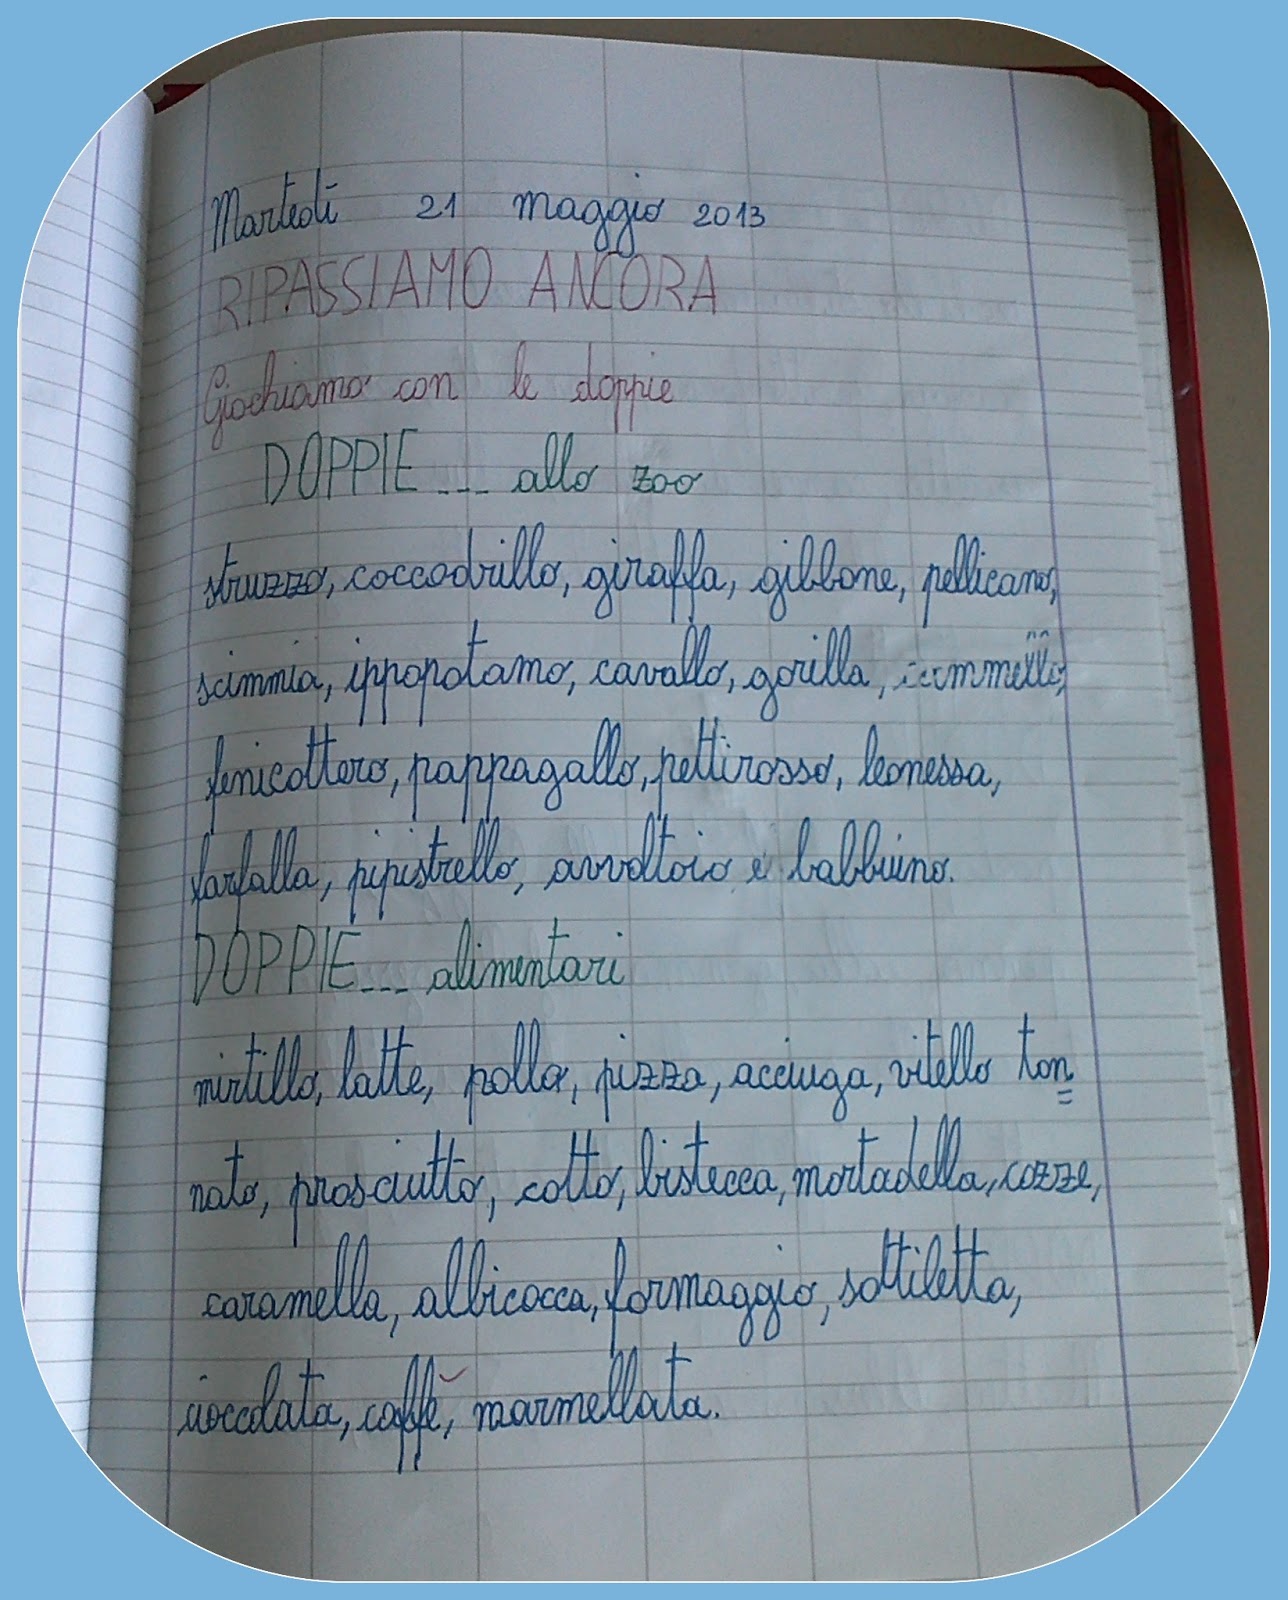 Martedì 21 maggio 2013
RIPASSIAMO ANCORA
Giochiamo con le doppie
DOPPIE... allo zoo
struzzo, coccodrillo, giraffa, gibbone, pellicano,
scimmia, ippopotamo, cavallo, gorilla,
fenicottero, pappagallo, pettirosso, leonessa,
farfalla, pipistrello, avvoltoio e babbuino.
DOPPIE... alimentari
mirtillo, latte, pollo, pizza, acciuga, vitello ton=
nato, prosciutto, cotto, bistecca, mortadella, cozze,
caramella, albicocca, formaggio, sottiletta,
cioccolata, caffè, marmellata.